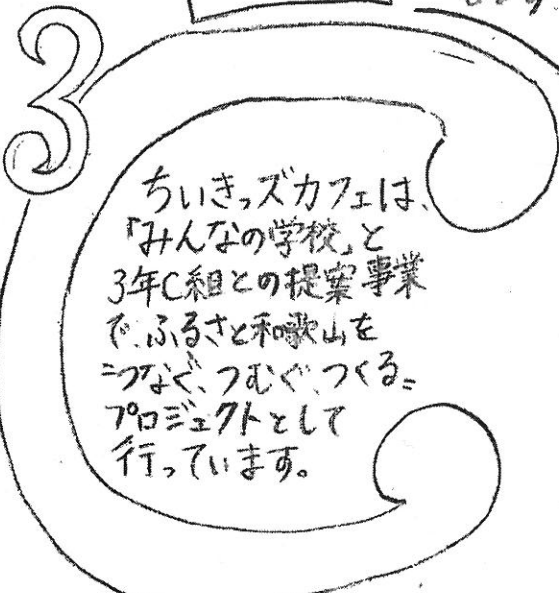 3
C
ちいきっズカフェは、
「みんなの学校」と
3年C組との提案事業
で、ふるさと和歌山を
=つなぐ、つむぐ、つくる=
プロジェクトとして
行っています。